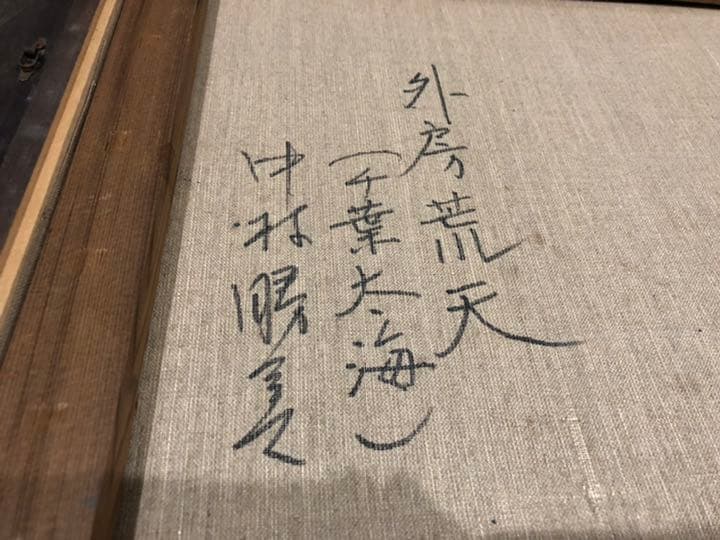 外房荒天
(千葉太海)
中村勝美